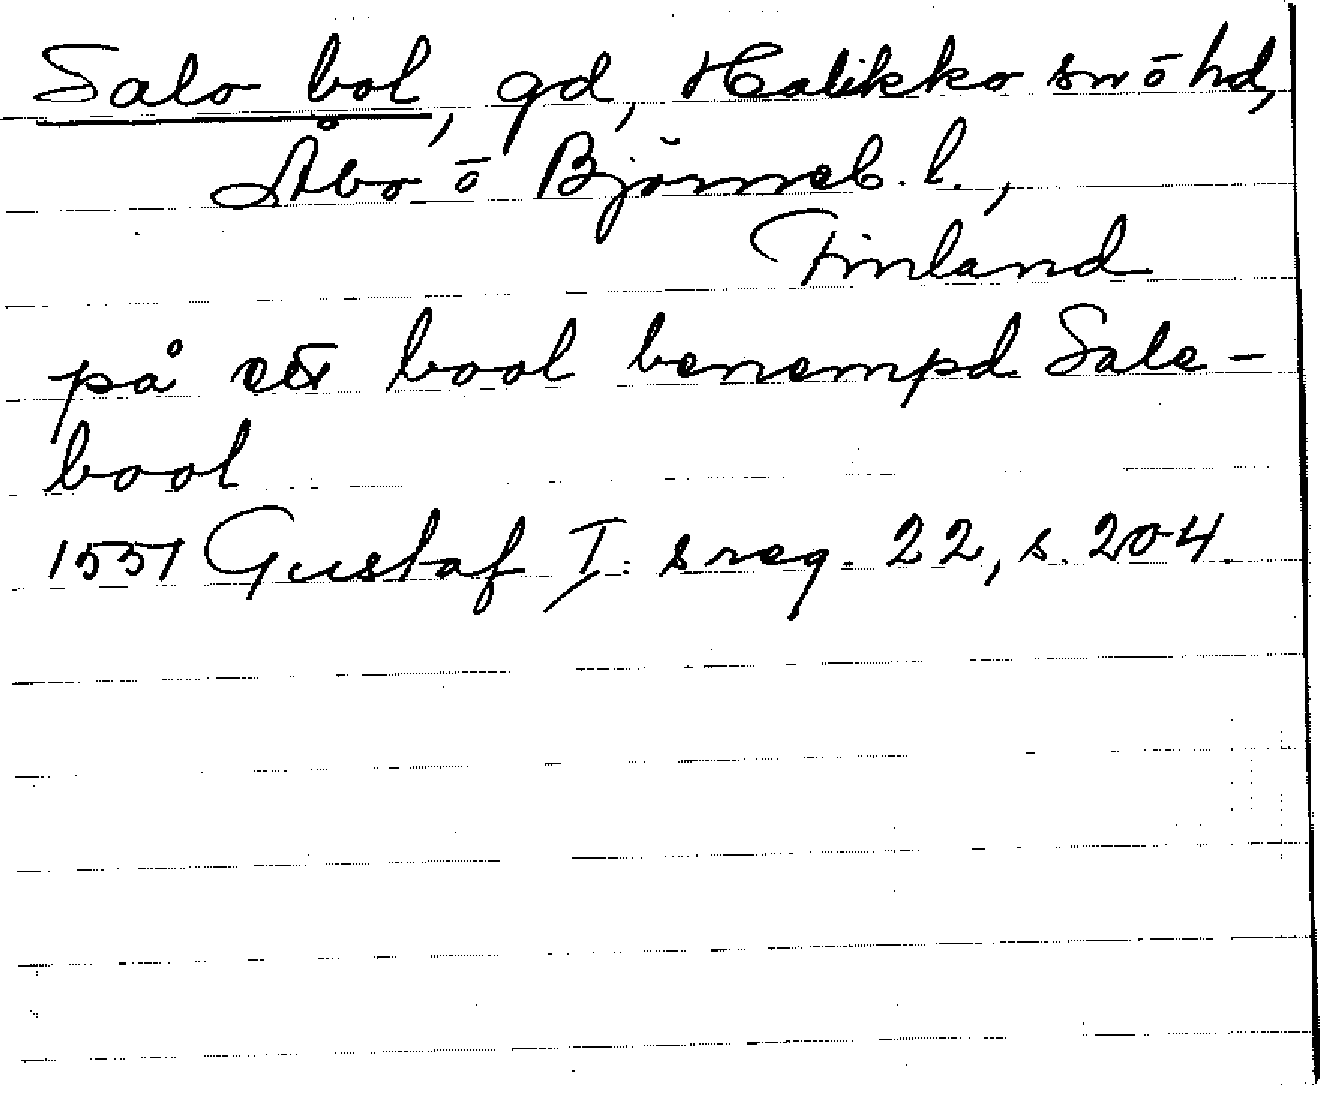 Salo bol, gd, Halikko sn ō hd,
Åbo ō Björneb. l.,
Finland
på ett bool benempd Sale-
bool
1551 Gustaf I:s reg. 22, s. 204.